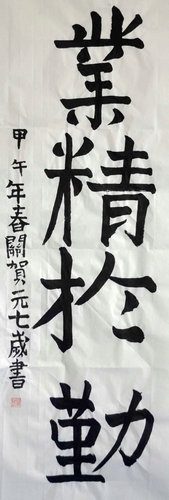 業精於勤
甲午年春關賀元七歲書